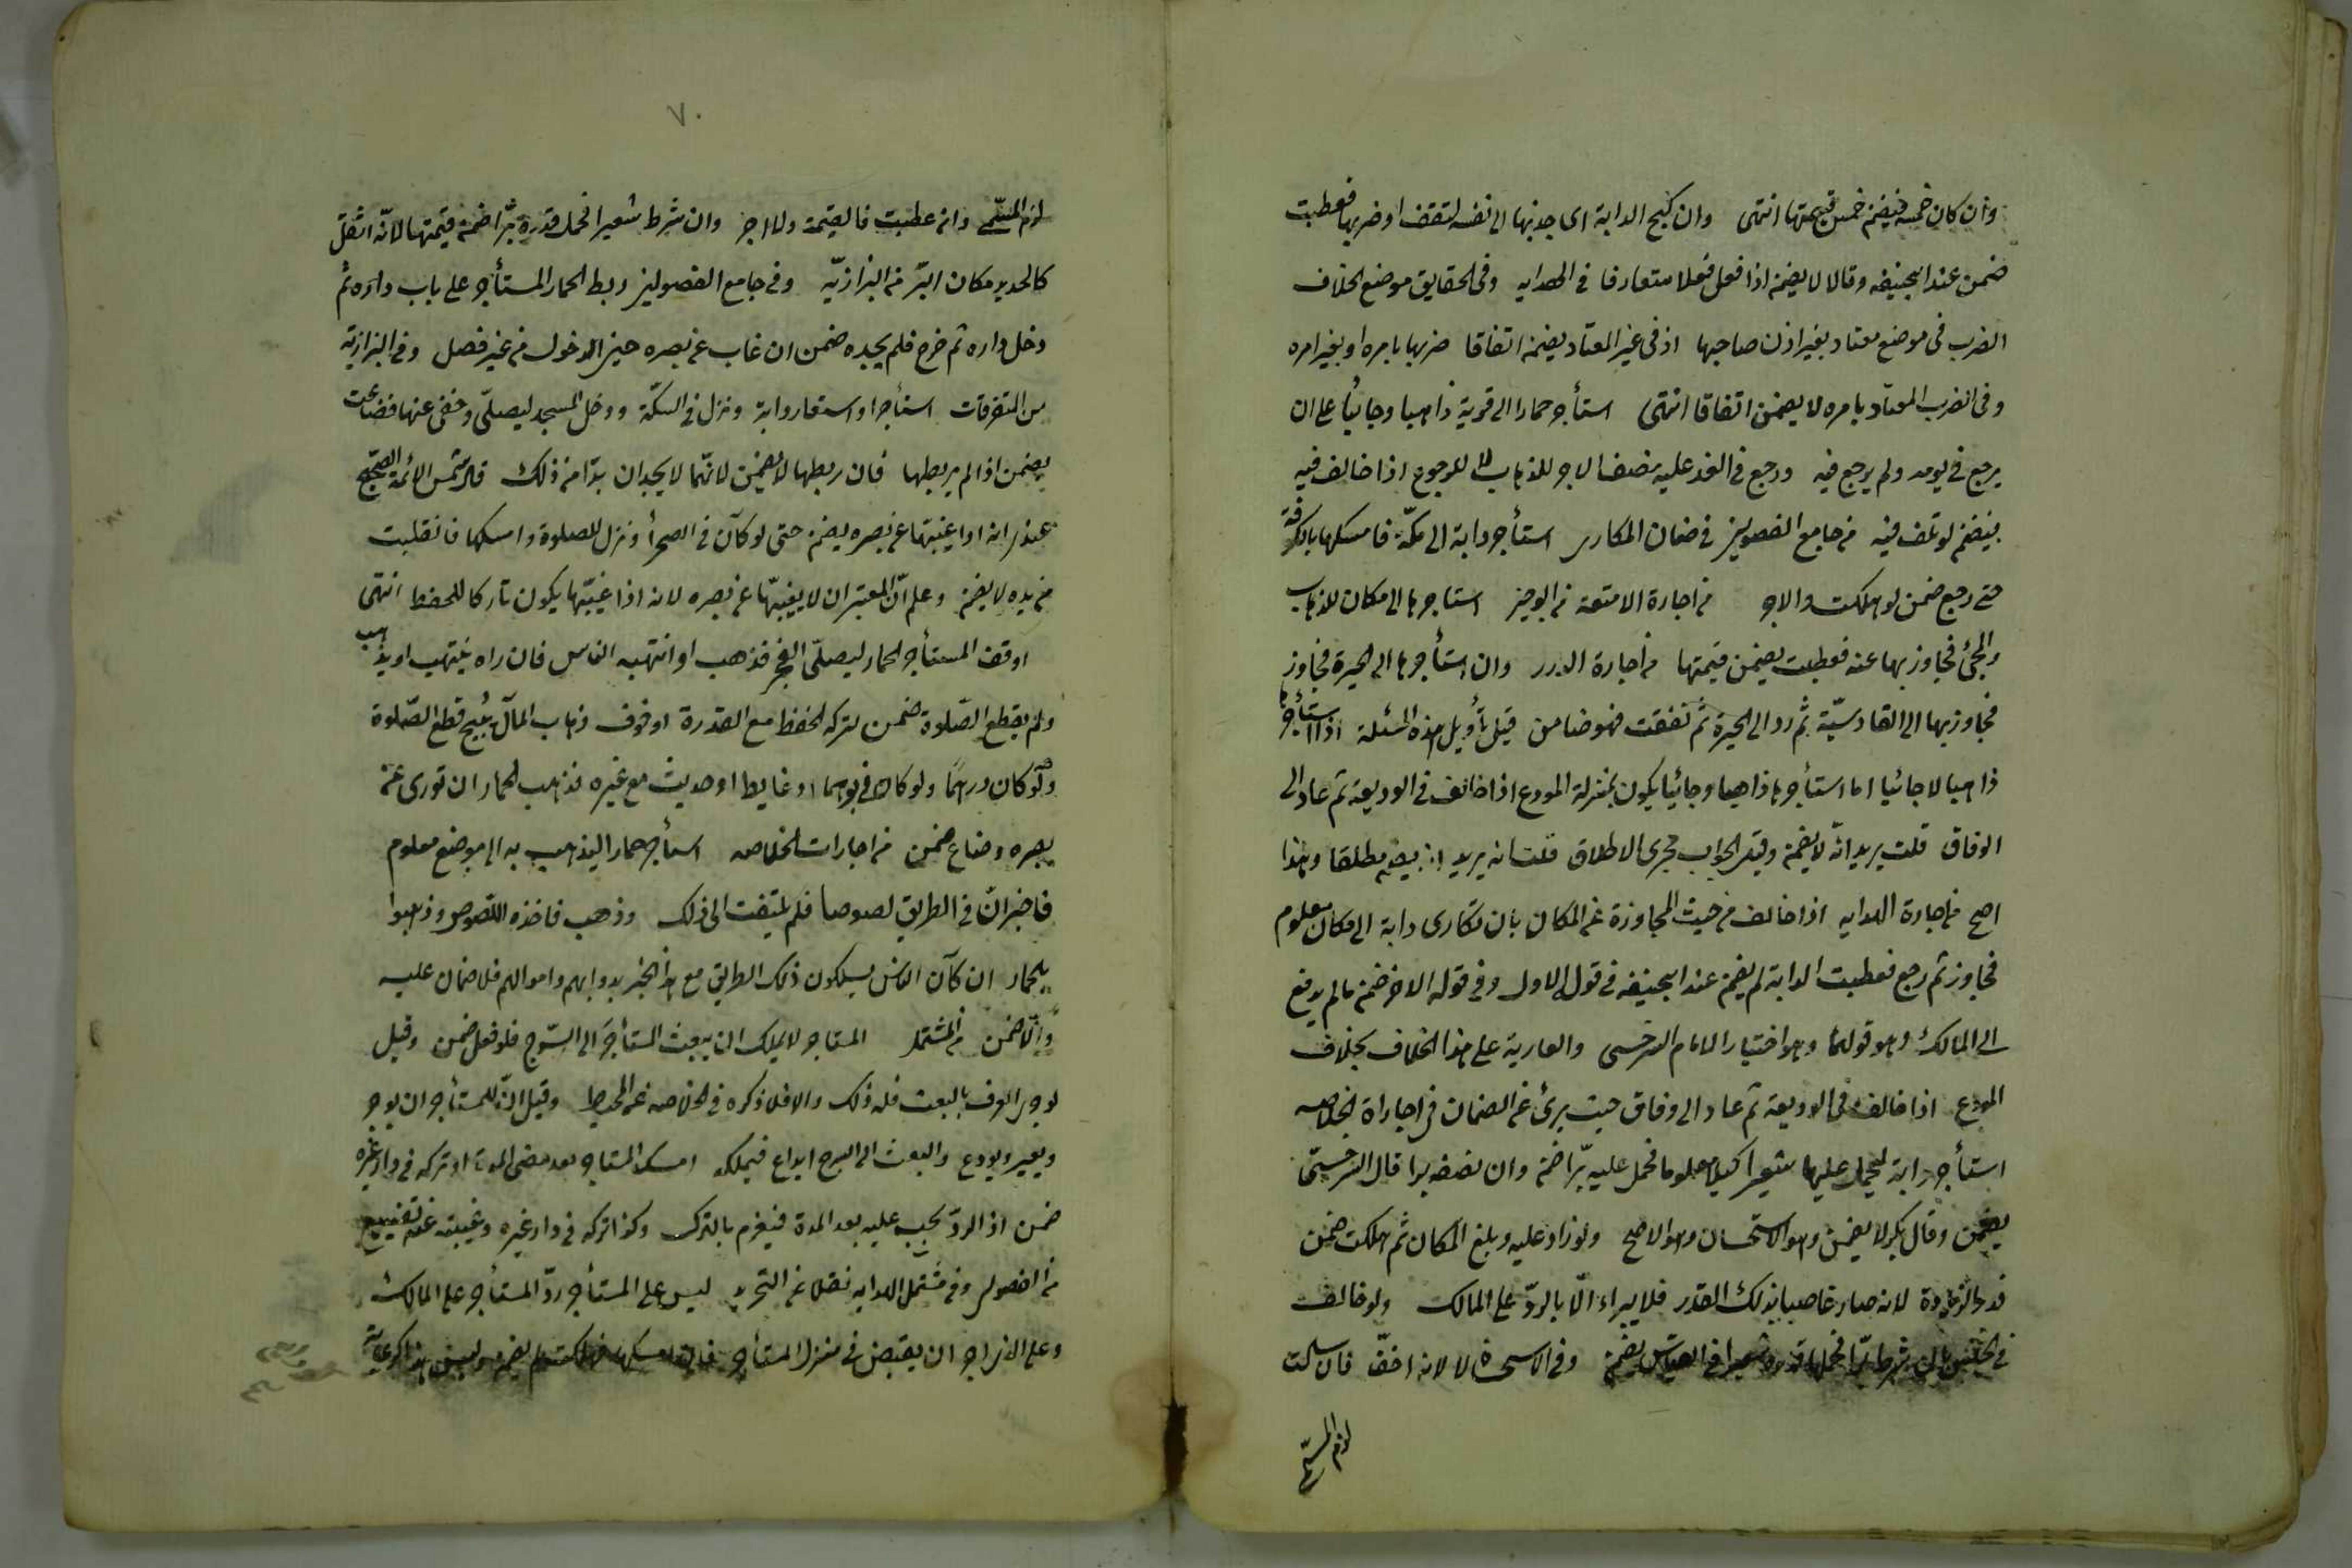 وان كان خمسه فيضمن خمس قيمتها انتهى وان كبح الدابة اى جذبها الى نفسه لتقف او ضربها فعطبت
ضمن عند ابيحنيفه وقالا لا يضمن اذا فعل فعلا متعارفا فى الهدايه وفى الحقايق موضع الخلاف
الضرب فى موضع معتاد بغير اذن صاحبها اذ فى غير المعتاد يضمن اتفاقا ضربها بامره او بغير امره
وفى الضرب المعتاد بامره لا يضمن اتفاقا انتهى استأجر حمارا الى قرية ذاهبا وجائيا على ان
يرجع فى يومه ولم يرجع فيه ورجع فى الغد عليه نصف الاجر للذهاب لا للرجوع اذا خالف فيه
فيضمن لو تلف فيه من جامع الفصولين فى ضمان المكارى استأجر دابة الى مكة فامسكها بالكوفة
حتى رجع ضمن لو هلكت والاجر من اجارة الامتعة من الوجيز استاجرها الى مكان للذهاب
والمجئ فجاوز بها عنه فعطبت يضمن قيمتها من اجارة الدرر وان استأجرها الى الحيرة فجاوز
فجاوز بها الى القادسيّة ثم رد الى الحيرة ثم نفقت فهو ضامن قيل تأويل هذه المسئلة اذا استأجرها
ذاهبا لا جائيا اما استأجرها ذاهبا وجائيا يكون بمنزلة المودع اذا خالف فى الوديعة ثم عاد الى
الوفاق قلت يريد انه لا يضمن وقيل الجواب مجرى الاطلاق قلت انه يريد انه يضمن مطلقا وهذا
اصح من اجارة الهدايه اذا خالف من حيث المجاوزة عن المكان بان تكارى دابة الى مكان معلوم
فجاوز ثم رجع فعطبت الدابة لم يضمن عند ابيحنيفه فى قوله الاول وفى قوله الاخر ضمن ما لم يدفع
الى المالك وهو قولهما وهو اختيار الامام السرخسى والعارية على هذا الخلاف بخلاف
المودع اذا خالف فى الوديعة ثم عاد الى وفاق حيث برئ عن الضمان من اجاراة الخلاصه
استأجر دابة ليحمل عليها شعيرا كيلا معلوما فحمل عليه برّا ضمن وان نصفه برا قال السرخسى
يضمن وقال بكر لا يضمن وهو الاستحسان وهو الاصح ولو زاد عليه وبلغ المكان ثم هلكت ضمن
قدر الزيادة لانه صار غاصبا بذلك القدر فلا يبراء الّا بالردّ على المالك ولو خالف
فى الجنس بان شرط برّا فحملها قدره شعيرا فى القياس يضمن وفى الاستحسان لا لانه اخفّ فان سلمت
لزم المسمّى
٧٠
لزم المسمّى وان عطبت فالقيمة ولا اجر وان شرط شعيرا فحمل قدره برّا ضمن قيمتها لانّه اثقل
كالحديد مكان البرّ من البزازيّه وفى جامع الفصولين ربط الحمار المستأجر على باب داره ثم
دخل داره ثم خرج فلم يجده ضمن ان غاب عن بصره حين الدخول من غير فصل وفى البزازية
من المتفرقات استأجر او استعار دابة ونزل فى السكّة ودخل المسجد ليصلّى وخفى عنها فضاعت
يضمن اذا لم يربطها فان ربطها لا يضمن لانّهما لا يجدان بدّا من ذلك قال شمس الائمة الصحيح
عندى انه اذا غيبتها عن بصره يضمن حتى لو كان فى الصحرأ ونزل للصلوة وامسكها فانفلتت
من يده لا يضمن وعلم انّ المعتبر ان لا يغيبّها عن بصره لانه اذا غيّبها يكون تاركا للحفظ انتهى
اوقف المستأجر الحمار ليصلّى الفجر فذهب او انتهبه الناس فان راه ينتهب او يذهب
ولم يقطع الصّلوة ضمن لتركه الحفظ مع القدرة اذ خوف ذهاب المال يبيح قطع الصّلوة
ولو كان درهمًا ولو كان فى او غايط او حديث مع غيره فذهب الحمار ان توارى عن
بصره وضاع ضمن من اجارات الخلاصه استأجر حمارا ليذهب به الى موضع معلوم
فاخبر ان فى الطريق لصوصا فلم يلتفت الى ذلك وذهب فاخذه اللصوص وذهبوا
بالحمار ان كان الناس يسلكون ذلك الطريق مع هذا الخبر بدوابهم واموالهم فلا ضمان عليه
والّا ضمن من المشتمل المستاجر لا يملك ان يبعث المستأجَر الى السّرح فلو فعل ضمن وقيل
لو جرى العرف بالبعث فله ذلك والا فلا ذكره فى الخلاصه عن المحيط وقيل انّ للمستأجر ان يوجر
ويعير ويودع والبعث الى السرح ايداع فيملكه امسك المستاجر بعد مضى المدة او تركه فى دار غيره
ضمن اذ الردّ يجب عليه بعد المدة فيغرم بالترك وكذا تركه فى دار غيره وغيبته عنه تضييع
من الفصولين وفى مشتمل الهدايه نقلا عن التجريد ليس على المستأجر ردّ المستأجر على المالك
وعلى الاٰجر ان يقبض فى منزل المستأجر فان امسكها فهلكت لم يضمن وليس هذا كعارية